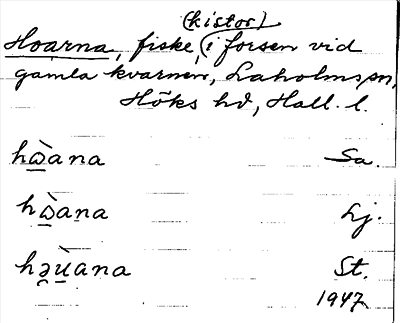 (kistor)
Hoarna, fiske, i forsen vid
gamla kvarnen, Laholms sn,
Höks hd, Hall. l.
hὼ̲ana Sa.
hὼ̲aṉa Lj.
hə̯ṳ̀ana St.
1947